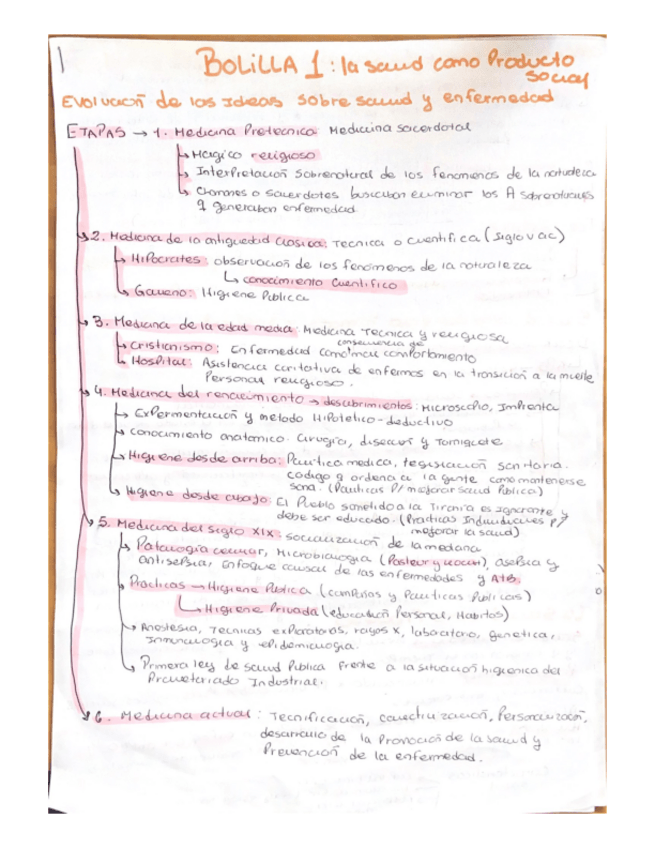 1
BOLILLA 1: la salud como Producto
social
EVOLUCIÓN de las Ideas sobre salud y enfermedad
ETAPAS → 1. Medicina Pretecnica: Medicina sacerdotal
↳ Magico religioso
↳ Interpretación sobrenatural de los fenomenos de la naturaleza
↳ Chamanes o sacerdotes buscaban eliminar los A sobrenaturales
q generaban enfermedad.
2. Medicina de la antiguedad clasica: Tecnica o cientifica (siglo V ac)
↳ Hipocrates: observación de los fenómenos de la naturaleza
↳ conocimiento cientifico
↳ Galeno: Higiene Publica
3. Medicina de la edad media: Medicina Tecnica y religiosa
↳ cristianismo: Enfermedad como consecuencia de mal comportamiento
↳ Hospital: Asistencia caritativa de enfermos en la transición a la muerte
Personal religioso.
4. Medicina del renacimiento → descubrimientos: Microscopio, Imprenta
↳ Experimentación y metodo Hipotetico-deductivo
↳ conocimiento anatomico. Cirugía, disección y Torniquete
↳ Higiene desde arriba: Politica medica, legislación sanitaria.
codigo q ordena a la gente como mantenerse
sana. (Politicas P/ mejorar salud Publica)
↳ Higiene desde abajo: El Pueblo sometido a la Tirania es Ignorante y
debe ser educado. (Practicas Individuales P/
mejorar la salud)
5. Medicina del Siglo XIX: socialización de la medicina
↳ Patología celular, Microbiologia (Pasteur y Kocch), asepsia y
antisepsia, enfoque causal de las enfermedades y ATB.
↳ Practicas → Higiene Publica (campañas y Politicas Publicas)
↳ Higiene Privada (educación Personal, Habitos)
↳ Anestesia, Tecnicas exploratorias, rayos x, laboratorio, genetica,
Inmunologia y epidemiologia.
↳ Primera ley de salud Publica frente a la situación higienica del
Proletariado Industrial.
6. Medicina actual: Tecnificación, colectivización, Personalización,
desarrollo de la Promoción de la salud y
Prevención de la enfermedad.